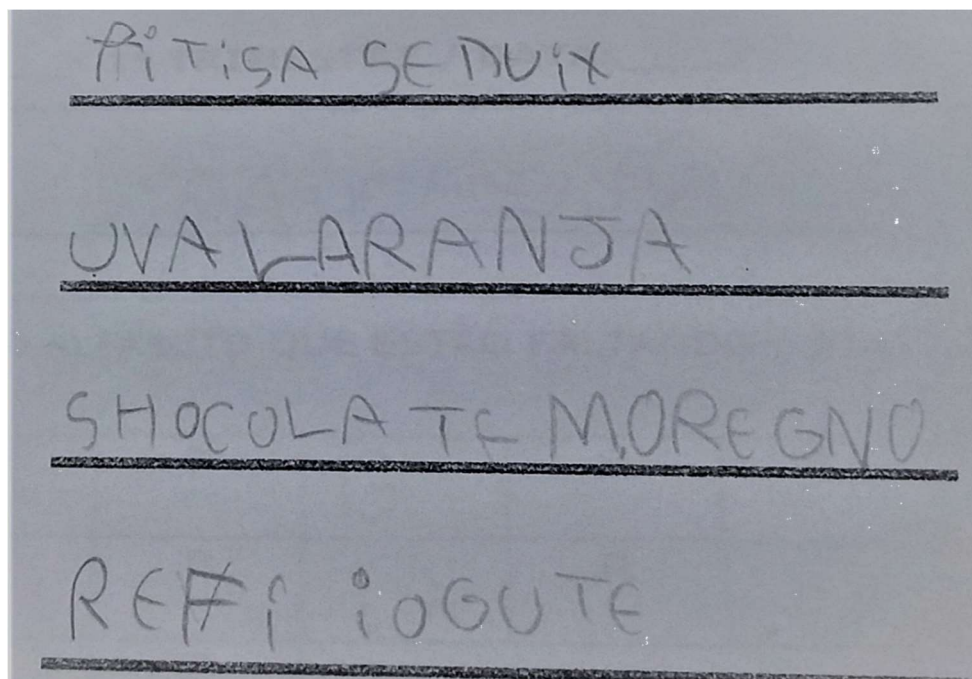 PiTiSA SEDUiX
UVA LARANJA
SHOCOLATE MOREGNO
REFi iOGUTE